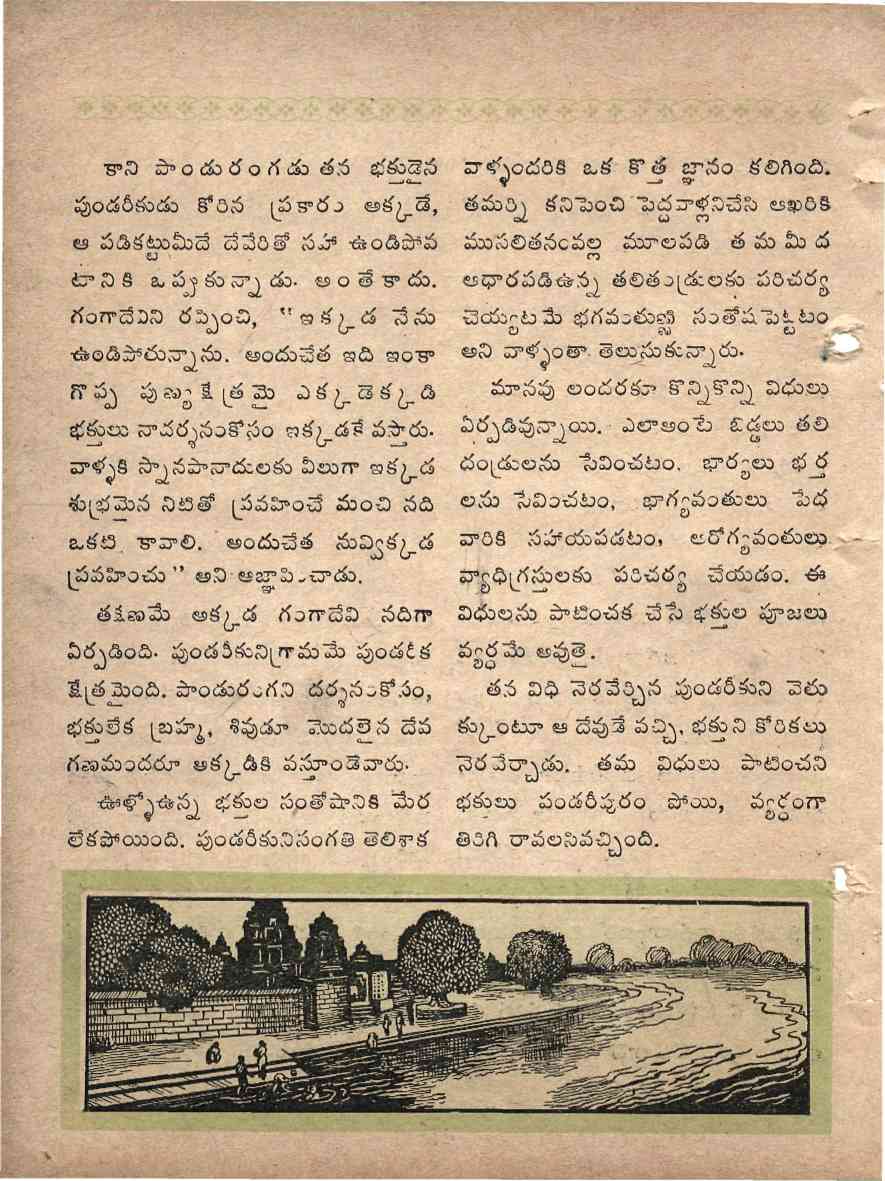 కాని పాండురంగడు తన భక్తుడైన
పుండరీకుడు కోరిన ప్రకారం అక్కడే,
ఆ పడికట్టుమీదే దేవేరితో సహా ఉండిపోవ
టానికి ఒప్పుకున్నాడు. అంతేకాదు.
గంగాదేవిని రప్పించి, "ఇక్కడ నేను
ఉండిపోతున్నాను. అందుచేత ఇది ఇంకా
గొప్ప పుణ్యక్షేత్రమై ఎక్కడెక్కడి
భక్తులు నాదర్శనంకోసం ఇక్కడకే వస్తారు.
వాళ్ళకి స్నానపానాదులకు వీలుగా ఇక్కడ
శుభ్రమైన నీటితో ప్రవహించే మంచి నది
ఒకటి కావాలి. అందుచేత నువ్విక్కడ
ప్రవహించు" అని ఆజ్ఞాపించాడు.
తక్షణమే అక్కడ గంగాదేవి నదిగా
ఏర్పడింది. పుండరీకునిగ్రామమే పుండరీక
క్షేత్రమైంది. పాండురంగని దర్శనంకోసం,
భక్తులేక బ్రహ్మ, శివుడూ మొదలైన దేవ
గణమందరూ అక్కడికి వస్తూండేవారు.
ఊళ్ళోఉన్న భక్తుల సంతోషానికి మేర
లేకపోయింది. పుండరీకునిసంగతి తెలిశాక
వాళ్ళందరికి ఒక కొత్త జ్ఞానం కలిగింది.
తమర్ని కనిపెంచి పెద్దవాళ్లనిచేసి ఆఖరికి
ముసలితనంవల్ల మూలపడి తమమీద
ఆధారపడిఉన్న తలితండ్రులకు పరిచర్య
చెయ్యటమే భగవంతుణ్ణి సంతోషపెట్టటం
అని వాళ్ళంతా తెలుసుకున్నారు.
మానవు లందరకూ కొన్నికొన్ని విధులు
ఏర్పడివున్నాయి. ఎలాఅంటే బిడ్డలు తలి
దండ్రులను సేవించటం, భార్యలు భర్త
లను సేవించటం, భాగ్యవంతులు పేద
వారికి సహాయపడటం, ఆరోగ్యవంతులు
వ్యాధిగ్రస్తులకు పరిచర్య చేయడం. ఈ
విధులను పాటించక చేసే భక్తుల పూజలు
వ్యర్థమే అవుతై.
తన విధి నెరవేర్చిన పుండరీకుని వెతు
క్కుంటూ ఆ దేవుడే వచ్చి, భక్తుని కోరికలు
నెరవేర్చాడు. తమ విధులు పాటించని
భక్తులు పండరీపురం పోయి, వ్యర్థంగా
తిరిగి రావలసివచ్చింది.